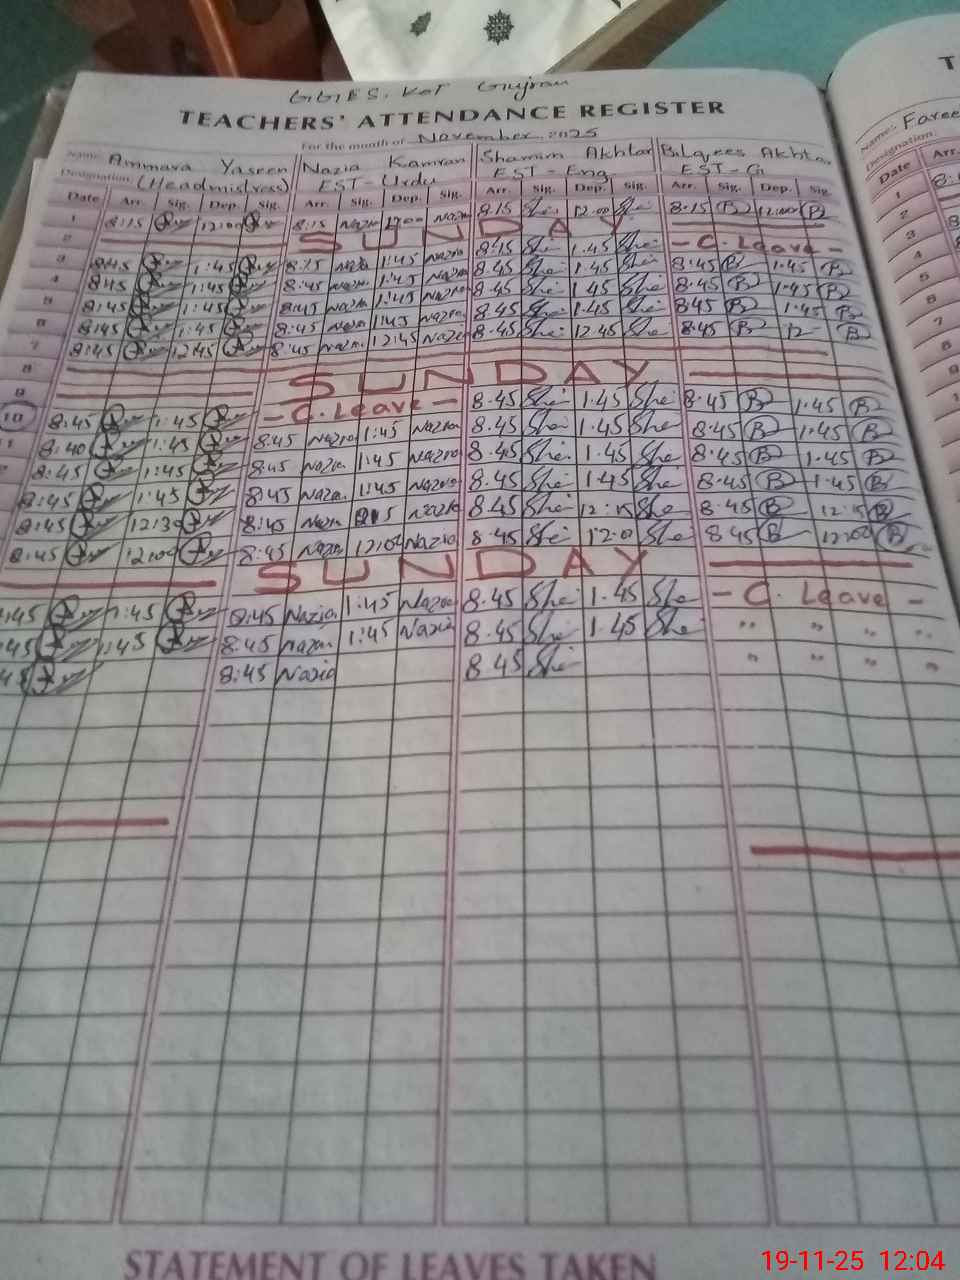 GGES. Kot Gujran
TEACHERS' ATTENDANCE REGISTER
For the month of November, 2025
Name: Ammara Yaseen Nazia Kamran Shamim Akhtar Bilqees Akhtar
Designation: (Headmistress) EST-Urdu EST-Eng EST-G
Date Arr. Sig. Dep. Sig. Arr. Sig. Dep. Sig. Arr. Sig. Dep. Sig. Arr. Sig. Dep. Sig.
1 8:15 12:00 8:15 8.15 She 12.00 She 8.15 B 12:00 B
2 SUNDAY
3 8:45 1:45 8:15 1:45 8:15 She 1.45 She - C. Leave -
4 8:45 1:45 8:45 1:45 8.45 She 1.45 She 8.45 B 1.45 B
5 8:45 1:45 8:45 1:45 8.45 She 1.45 She 8.45 B 1.45 B
6 8:45 1:45 8:45 1:45 8.45 She 1.45 She 8.45 B 1.45 B
7 8:45 12:45 8:45 12:45 8.45 She 12.45 She 8.45 B 12 B
8
9 SUNDAY
10 8:45 1:45 - C. Leave - 8.45 She 1.45 She 8.45 B 1.45 B
11 8:40 1:45 8:45 Nazia 1:45 Nazia 8.45 She 1.45 She 8.45 B 1.45 B
8:45 1:45 8:45 Nazia 1:45 Nazia 8.45 She 1.45 She 8.45 B 1.45 B
8:45 1:45 8:45 Nazia 1:45 Nazia 8.45 She 1.45 She 8.45 B 1.45 B
8:45 12:30 8:45 Nazia 8.45 She 12:15 She 8.45 B 12:15 B
8:45 12:00 8:45 Nazia 12:00 Nazia 8.45 She 12.00 She 8.45 B 12:00 B
SUNDAY
:45 1:45 8:45 Nazia 1:45 Nazia 8.45 She 1.45 She - C. Leave -
:45 1:45 8:45 Nazia 1:45 Nazia 8.45 She 1.45 She " " "
45 8:45 Nazia 8.45 She " " " "
STATEMENT OF LEAVES TAKEN
T
Name:
Designation:
Date Arr.
1 8:
2
3
4
5
6
7
8
9
19-11-25 12:04